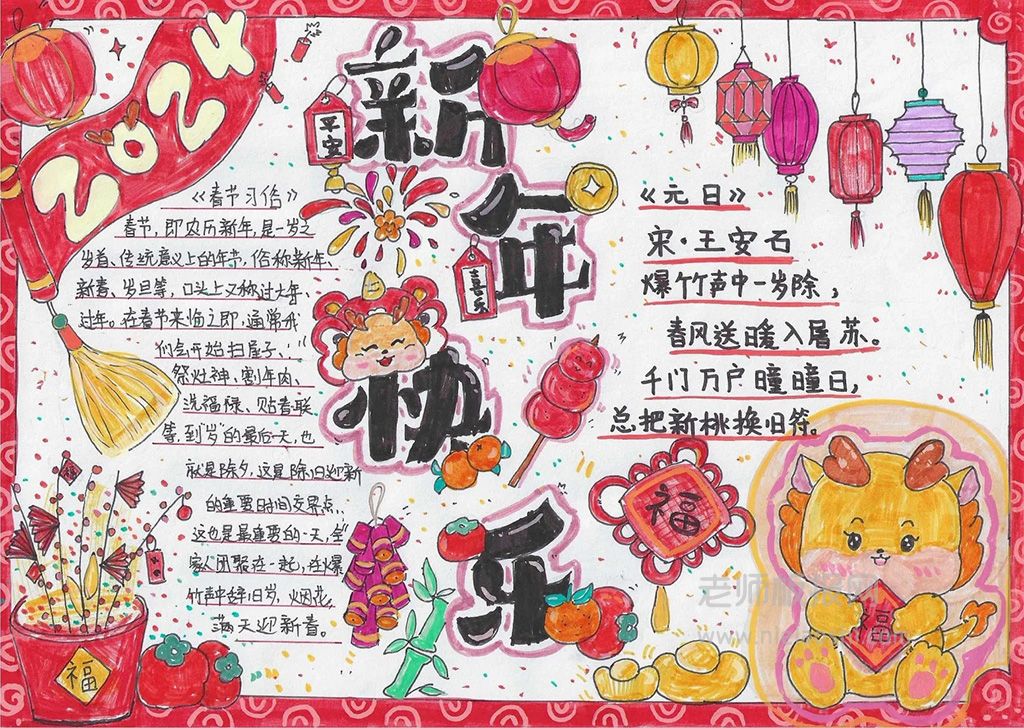 2024
新年快乐
平安
喜乐
《春节习俗》
春节，即农历新年，是一岁之
岁首、传统意义上的年节，俗称新年、
新春、岁旦等，口头上又称过大年、
过年。在春节来临之即，通常我
们会开始扫屋子、
祭灶神、割年肉、
洗福禄、贴春联
等，到“岁”的最后一天，也
就是除夕，这是除旧迎新
的重要时间交界点，
这也是最重要的一天，全
家人团聚在一起，在爆
竹声中辞旧岁，烟花
满天迎新春。
《元日》
宋·王安石
爆竹声中一岁除，
春风送暖入屠苏。
千门万户曈曈日，
总把新桃换旧符。
福
福
福